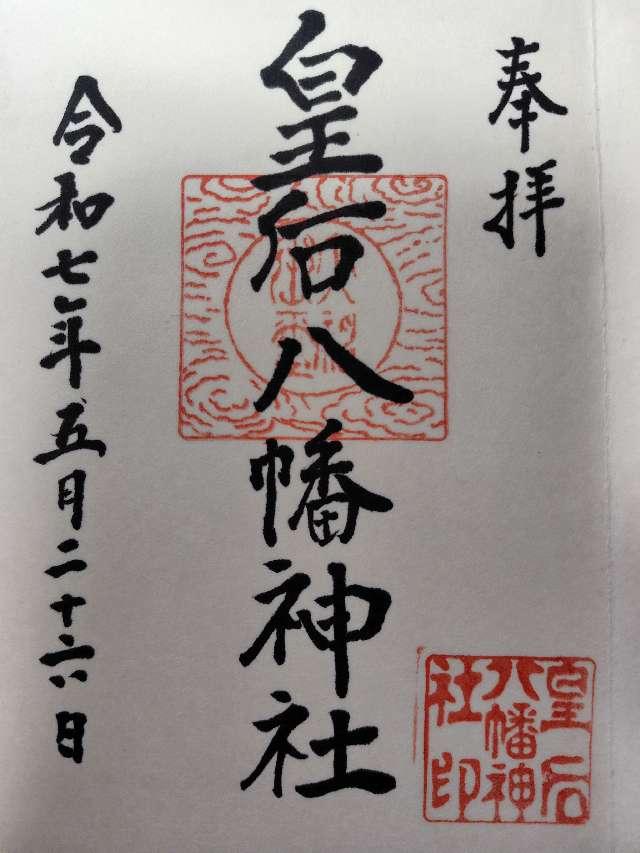 奉拝
皇后八幡神社
令和七年五月二十六日
皇后
八幡神
社印